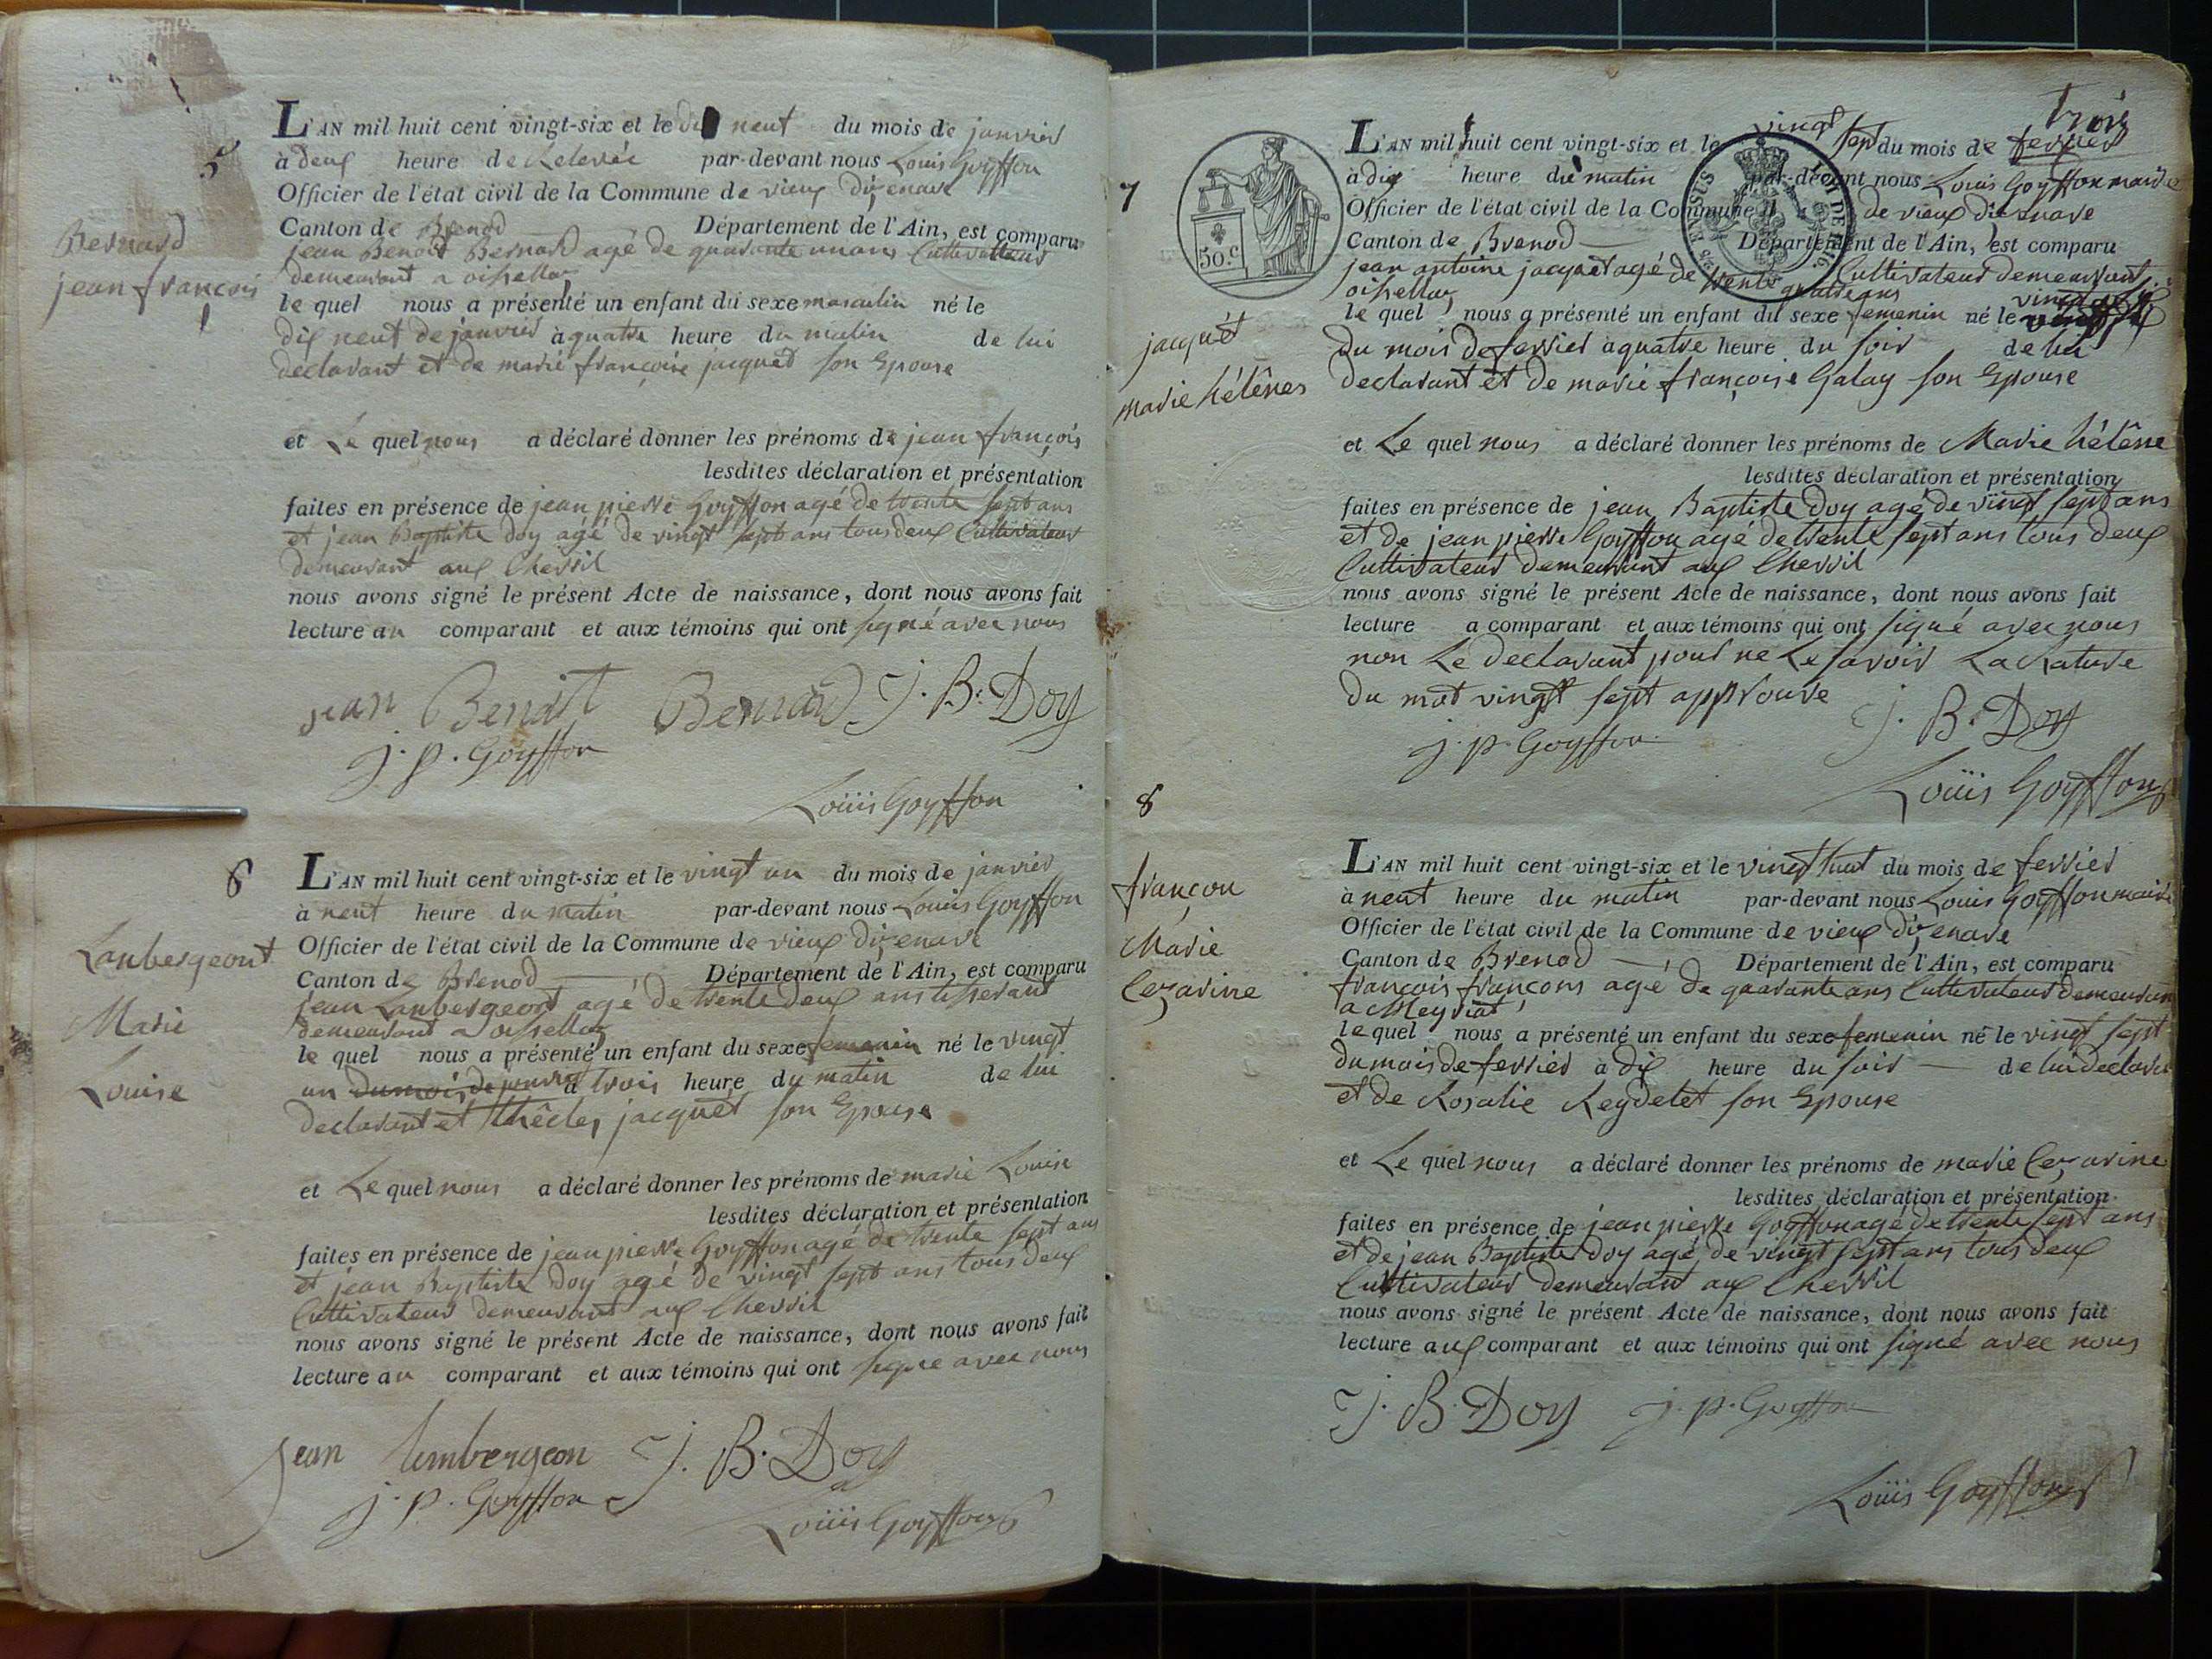 5
Bernard
jean françois
L'AN mil huit cent vingt-six et le dix neuf du mois de janvier
à deux heure de Relevée par-devant nous Louis Goyffon
Officier de l'état civil de la Commune de vieux dizenave
Canton de Brenod Département de l'Ain, est comparu
jean Benoit Bernard agé de quarante un ans Cultivateur
demeurant a oissellaz
le quel nous a présenté un enfant du sexe masculin né le
dix neuf de janvier à quatre heure du matin de lui
declarant et de marie françoise jacquet son Epouse
et Le quel nous a déclaré donner les prénoms de jean françois
lesdites déclaration et présentation
faites en présence de jean pierre Goyffon agé de trente sept ans
et jean Baptiste Doy agé de vingt sept ans tous deux Cultivateur
demeurant aux Cherril
nous avons signé le présent Acte de naissance, dont nous avons fait
lecture au comparant et aux témoins qui ont signé avec nous
jean Benoit Bernard J. B. Doy
j. p. Goyffon
Loüis Goyffon
6
Lanbergeont
Marie
Louise
L'AN mil huit cent vingt-six et le vingt un du mois de janvier
à neuf heure du matin par-devant nous Louis Goyffon
Officier de l'état civil de la Commune de vieux dizenave
Canton de Brenod Département de l'Ain, est comparu
jean Lanbergeont agé de trente deux ans tisserant
demeurant a oissellaz
le quel nous a présenté un enfant du sexe femenin né le vingt
un du mois de janvier à trois heure du matin de lui
declarant et thêcles jacquet son Epouse
et Le quel nous a déclaré donner les prénoms de marie Louise
lesdites déclaration et présentation
faites en présence de jean pierre Goyffon agé de trente sept ans
et jean Baptiste Doy agé de vingt sept ans tous deux
Cultivateur demeurant aux Cherril
nous avons signé le présent Acte de naissance, dont nous avons fait
lecture au comparant et aux témoins qui ont signe avec nous
jean lambergeon J. B. Doy
j. p. Goyffon
Loüis Goyffon
trois
7
50.c
jacquet
marie hélênes
L'AN mil huit cent vingt-six et le vingt sept du mois de fevrier
à dix heure du matin par-devant nous Louis Goyffon maire
Officier de l'état civil de la Commune de vieux dizenave
Canton de Brenod Département de l'Ain, est comparu
jean antoine jacquet agé de trente quatre ans Cultivateur demeurant
oissellaz
le quel nous a présenté un enfant du sexe femenin né le vingt six
du mois de fevrier à quatre heure du soir de lui
declarant et de marie françoise Galay son Epouse
et Le quel nous a déclaré donner les prénoms de Marie hélêne
lesdites déclaration et présentation
faites en présence de jean Baptiste Doy agé de vingt sept ans
et de jean pierre Goyffon agé de trente sept ans tous deux
Cultivateur demeurant aux Cherril
nous avons signé le présent Acte de naissance, dont nous avons fait
lecture a comparant et aux témoins qui ont signé avec nous
non Le declarant pour ne Le savoir La Rature
du mot vingt sept approuve
J. B. Doy
j. p. Goyffon
Loüis Goyffon
8
françon
Marie
Cezarine
L'AN mil huit cent vingt-six et le vingt huit du mois de fevrier
à neuf heure du matin par-devant nous Louis Goyffon maire
Officier de l'état civil de la Commune de vieux dizenave
Canton de Brenod Département de l'Ain, est comparu
françois françons agé de quarante ans Cultivateur demeurant
a Meyriat
le quel nous a présenté un enfant du sexe femenin né le vingt sept
du mois de fevrier à dix heure du soir de lui declarant
et de Rosalie Reydelet son Epouse
et Le quel nous a déclaré donner les prénoms de marie Cezarine
lesdites déclaration et présentation
faites en présence de jean pierre Goyffon agé de trente sept ans
et de jean Baptiste Doy agé de vingt sept ans tous deux
Cultivateur demeurant aux Cherril
nous avons signé le présent Acte de naissance, dont nous avons fait
lecture aux comparant et aux témoins qui ont signé avec nous
J. B. Doy j. p. Goyffon
Loüis Goyffon